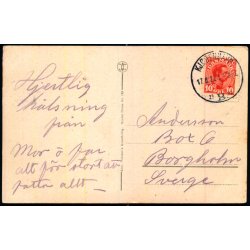 Hjertlig
hälsning
från
Mor & par
alt för stort at
fatta allt—
Andersson
Box 6
Borgholm
Sverige
10 10